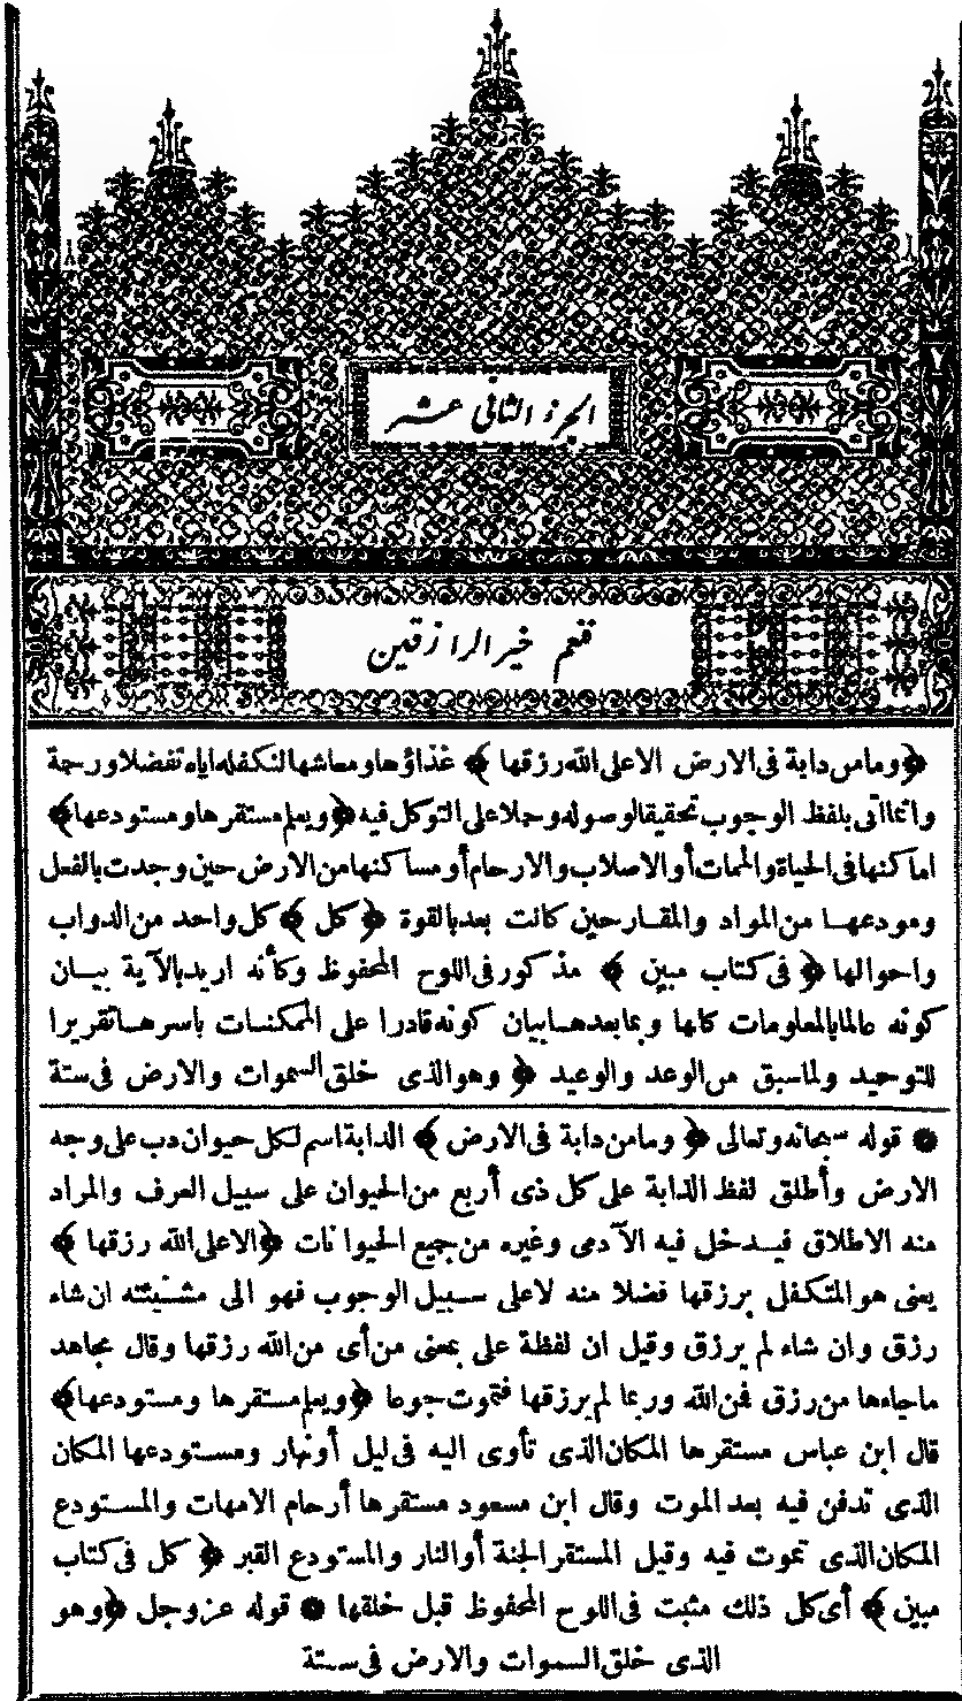 الجزء الثانى عشر
فنعم خير الرازقين
﴿ ومامن دابة فى الارض الا على الله رزقها ﴾ غذاؤها ومعاشها لتكفله اياه تفضلا ورحمة
وانما اتى بلفظ الوجوب تحقيقا لوصوله وحملا على التوكل فيه ﴿ ويعلم مستقرها ومستودعها ﴾
اما كنها فى الحياة والممات أو الاصلاب والارحام أو مسا كنها من الارض حين وجدت بالفعل
ومودعهـا من المواد والمقـار حين كانت بعد بالقوة ﴿ كل ﴾ كل واحد من الدواب
واحوالها ﴿ فى كتاب مبين ﴾ مذ كور فى اللوح المحفوظ وكأنه اريد بالآية بيـان
كونه عالما بالمعلومات كلها وبما بعدهـا بيان كونه قادرا على الممكنـات باسرهـا تقريرا
للتوحيد ولما سبق من الوعد والوعيد ﴿ وهو الذى خلق السموات والارض فى ستة
❁ قوله سبحانه وتعالى ﴿ ومامن دابة فى الارض ﴾ الدابة اسم لكل حيوان دب على وجه
الارض وأطلق لفظ الدابة على كل ذى أربع من الحيوان على سبيل العرف والمراد
منه الاطلاق فيـدخل فيه الآدمى وغيره من جميع الحيوانات ﴿ الا على الله رزقها ﴾
يعنى هو المتكفل برزقها فضلا منه لا على سـبيل الوجوب فهو الى مشـيئته ان شاء
رزق وان شاء لم يرزق وقيل ان لفظة على بمعنى من أى من الله رزقها وقال مجاهد
ماجاءها من رزق فمن الله وربما لم يرزقها فتموت جوعا ﴿ ويعلم مستقرها ومستودعها ﴾
قال ابن عباس مستقرها المكان الذى تأوى اليه فى ليل أو نهار ومسـتودعها المكان
الذى تدفن فيه بعد الموت وقال ابن مسعود مستقرها أرحام الامهات والمسـتودع
المكان الذى تموت فيه وقيل المستقر الجنة أو النار والمستودع القبر ﴿ كل فى كتاب
مبين ﴾ أى كل ذلك مثبت فى اللوح المحفوظ قبل خلقها ❁ قوله عزوجل ﴿ وهو
الذى خلق السموات والارض فى سـتة